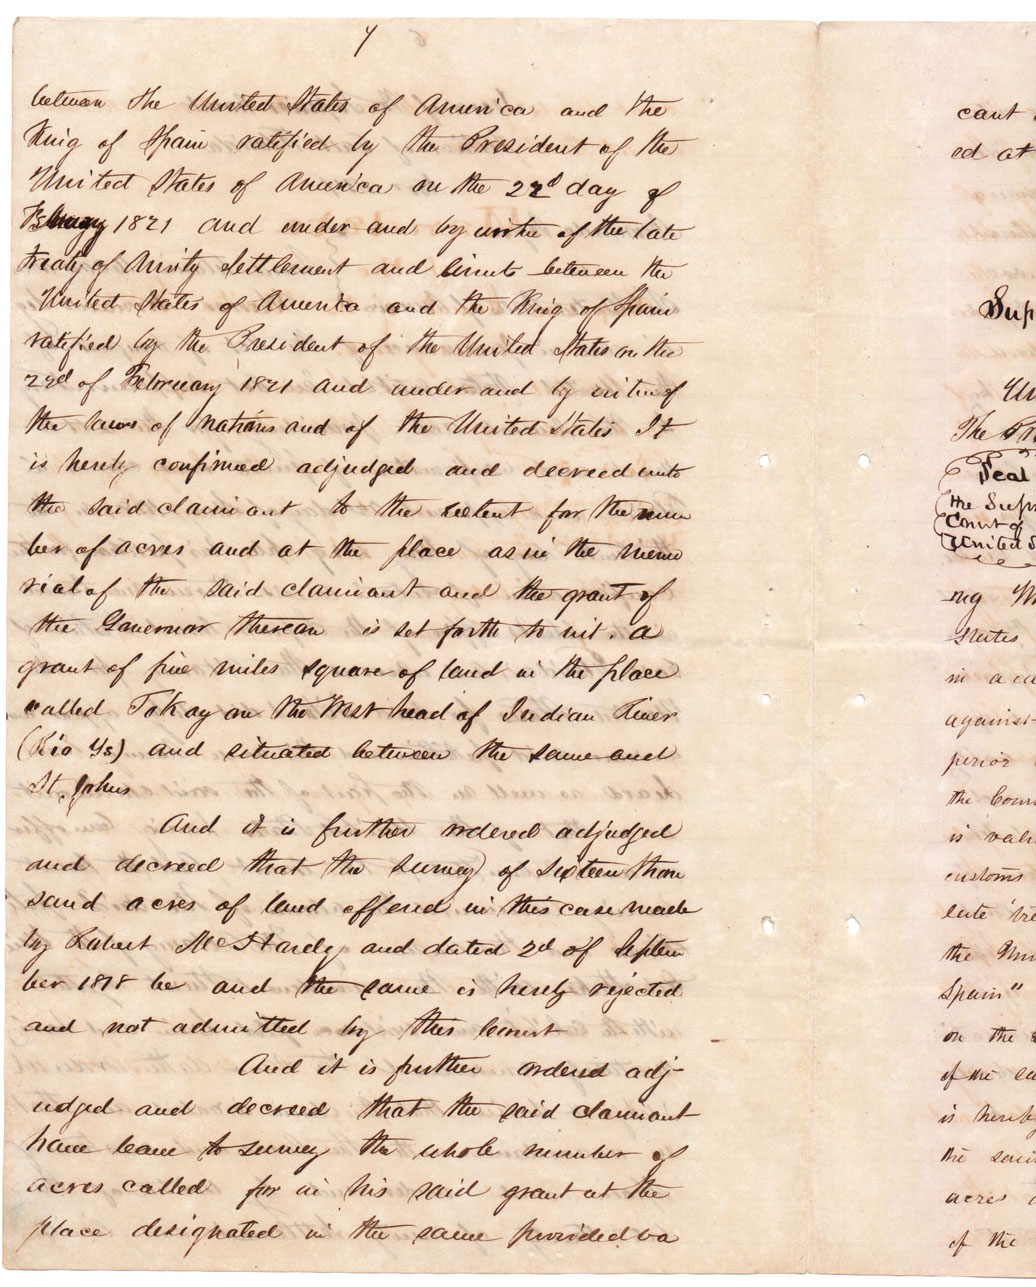 7
between the United States of America and the
King of Spain ratified by the President of the
United States of America on the 22d day of
1821 and under and by virtue of the late
treaty of Amity Settlement and limits between the
United States of America and the King of Spain
ratified by the President of the United States on the
22d of February 1821 and under and by virtue of
the laws of nations and of the United States It
is hereby confirmed adjudged and decreed unto
the said claimant to the extent for the num
ber of acres and at the place as in the memo
rial of the said claimant and the grant of
the Governor thereon is set forth to wit. a
grant of five miles square of land in the place
called on the West head of Indian River
(Rio Ys) and situated between the same and
St. Johns
And it is further ordered adjudged
and decreed that the survey of Sixteen thou
sand acres of land offered in this case made
by Robert McHardy and dated 2d of Septem
ber 1818 be and the same is hereby rejected
and not admitted by this Court
And it is further ordered adj-
udged and decreed that the said claimant
have leave to survey the whole number of
acres called for in his said grant at the
place designated in the same provided va
cant
ed at
Sup
Un
The
Seal
the Sup
Court of
United S
ing
states
in a ca
against
perior
the Cour
is vali
customs
late tre
the Uni
Spain"
on the
of the sa
is hereb
the said
acres
of the